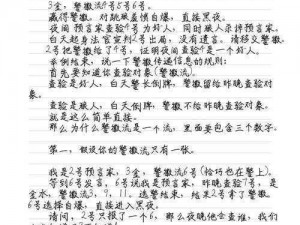 3金，警徽流4号5号6号。
赢得警徽。对跳被查悍自爆，直接黑夜。
夜间 预言家查验4号为好人，同时狼人杀掉预言家。
白天起身法官宣判2号出局，没有遗言。请移交警徽。
2号把警徽给了4号，证明夜间查验4是一个好人。
举例结束，说一下警徽传递信息的规则：
首先要知道你查验对象(警徽流)。
查验是好人，白天警长倒牌，警徽留给昨晚查验对象。
查验是狼人，白天警长倒牌，警徽不给昨晚查验对象。
就是这么简单直接。
那么为什么警徽流是一个流，里面要包含三个数字。
第一，假设你的警徽流只有一张。
我是2号预言家，3金，警徽流6号(恰巧也在警上)。
等到6号发言，6号说我是预言家，昨晚查验7号，是
金水，警徽流3，9，11。选警结束，结果2号拿了警徽
6号选择自爆，直接进入黑夜。
请问，2号只报了一个6，那么夜晚他会查谁，我们